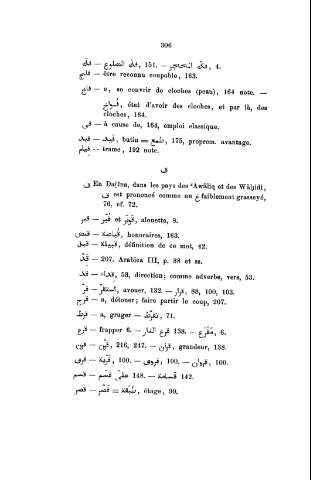 306
فكّ — فكّ الضلوع, 151. — فكّ المتحجّر, 4.
فلج — être reconnu coupable, 163.
فلج — a, se couvrir de cloches (peau), 164 note. —
فُواخ, état d'avoir des cloches, et par là, des
cloches, 164.
فى — à cause de, 164, emploi classique.
فيد — فَيد, butin = طمع, 175, proprem. avantage.
فيلم — trame, 192 note.
ق
ق En Daṯîna, dans les pays des ʿAwâliq et des Wâḥidi,
ق est prononcé comme un غ faiblement grasseyé,
76, cf. 72.
قبر — قُبَّر et قوبر, alouette, 8.
قبض — قُباضة, honoraires, 163.
قبل — قبيلة, définition de ce mot, 42.
قدّ — 207. Arabica III, p. 88 et ss.
قد — قداء, 53, direction; comme adverbe, vers, 53.
قرّ — استقرّ, avouer, 132. — قرار, 88, 100, 103.
قرح — a, détoner; faire partir le coup, 207.
قرط — a, gruger — تقرّط, 71.
قرع — frapper 6. — قرع النار 138. — مقرع, 6.
قرن — قرن, 216, 247. — قران, grandeur, 138.
قرى — قرية, 100. — قروى, 100. — قروان, 100.
قسم — قسم على 148. — قسامة 142.
قصر — قصر = طبقة, étage, 90.